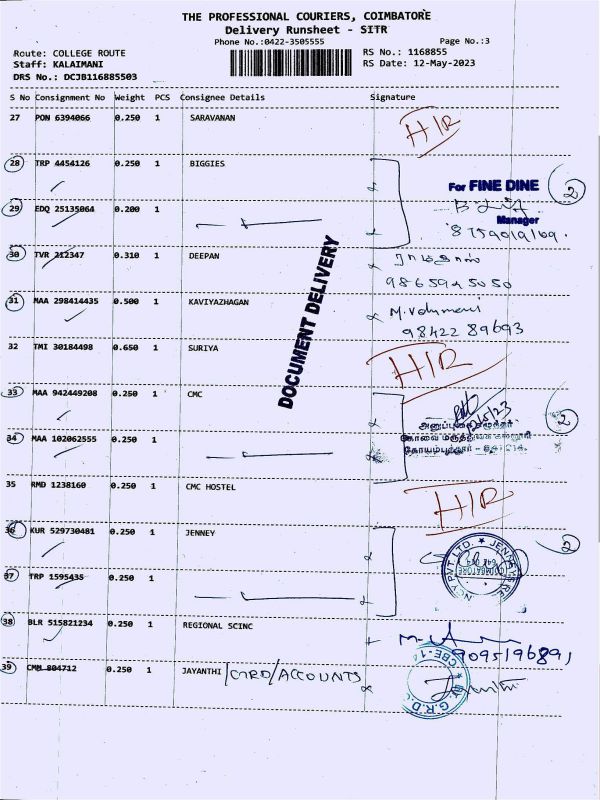 THE PROFESSIONAL COURIERS, COIMBATORE
Delivery Runsheet - SITR
Phone No.:0422-3505555
Page No.:3
Route: COLLEGE ROUTE
RS No.: 1168855
Staff: KALAIMANI
RS Date: 12-May-2023
DRS No.: DCJB116885503
S No Consignment No Weight PCS Consignee Details Signature
27 PON 6394066 0.250 1 SARAVANAN H/R
28 TRP 4454126 0.250 1 BIGGIES
For FINE DINE 2
29 EDQ 25135064 0.200 1
Manager
30 TVR 212347 0.310 1 DEEPAN
9865945050
DOCUMENT DELIVERY
31 MAA 298414435 0.500 1 KAVIYAZHAGAN
98422 89693
32 TMI 30184498 0.650 1 SURIYA H/R
33 MAA 942449208 0.250 1 CMC
2
34 MAA 102062555 0.250 1
கோவை மருத்துவக்
35 RMD 1238160 0.250 1 CMC HOSTEL H/R
36 KUR 529730481 0.250 1 JENNEY 2
COIMBATORE
37 TRP 1595435 0.250 1
38 BLR 515821234 0.250 1 REGIONAL SCINC
9095196891
39 CMM 804712 0.250 1 JAYANTHI /GRD/ACCOUNTS
G.R.D. CBE-14